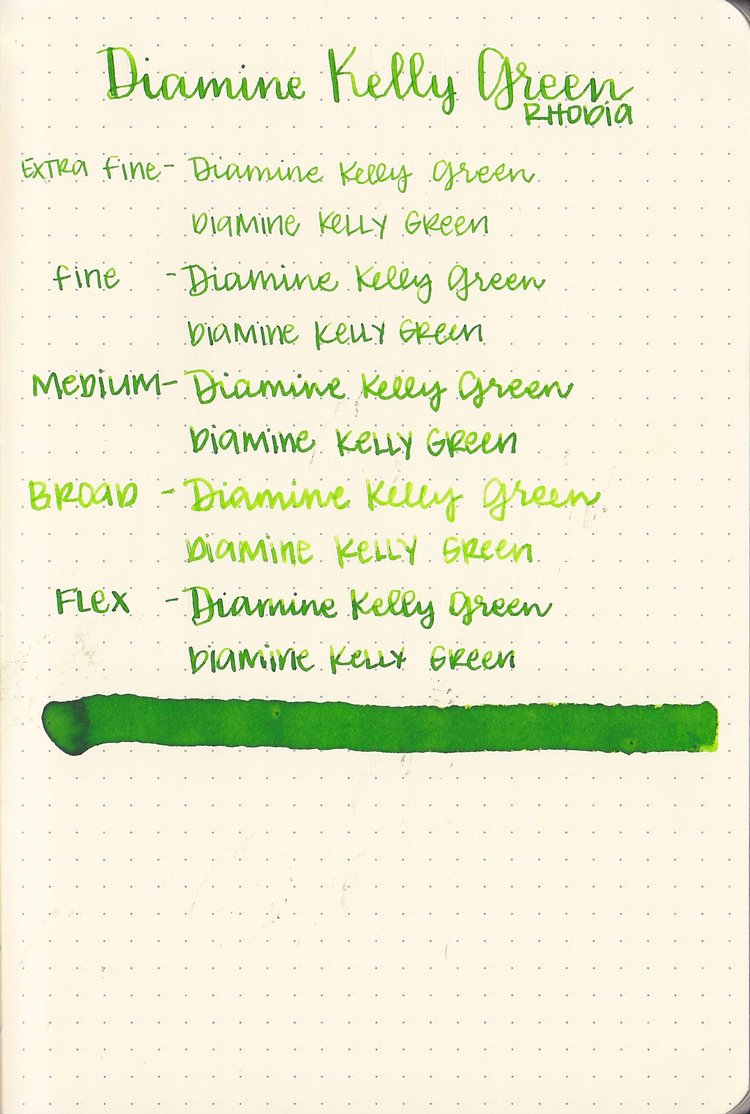 Diamine Kelly Green
RHODIA
EXTRA fine - Diamine Kelly Green
DiAMiNE KELLY GREEN
fine - Diamine Kelly Green
DiAMiNE KELLY GREEN
MEDiUM - Diamine Kelly Green
DiAMiNE KELLY GREEN
BROAD - Diamine Kelly Green
DiAMiNE KELLY GREEN
FLEX - Diamine Kelly Green
DiAMiNE KELLY GREEN